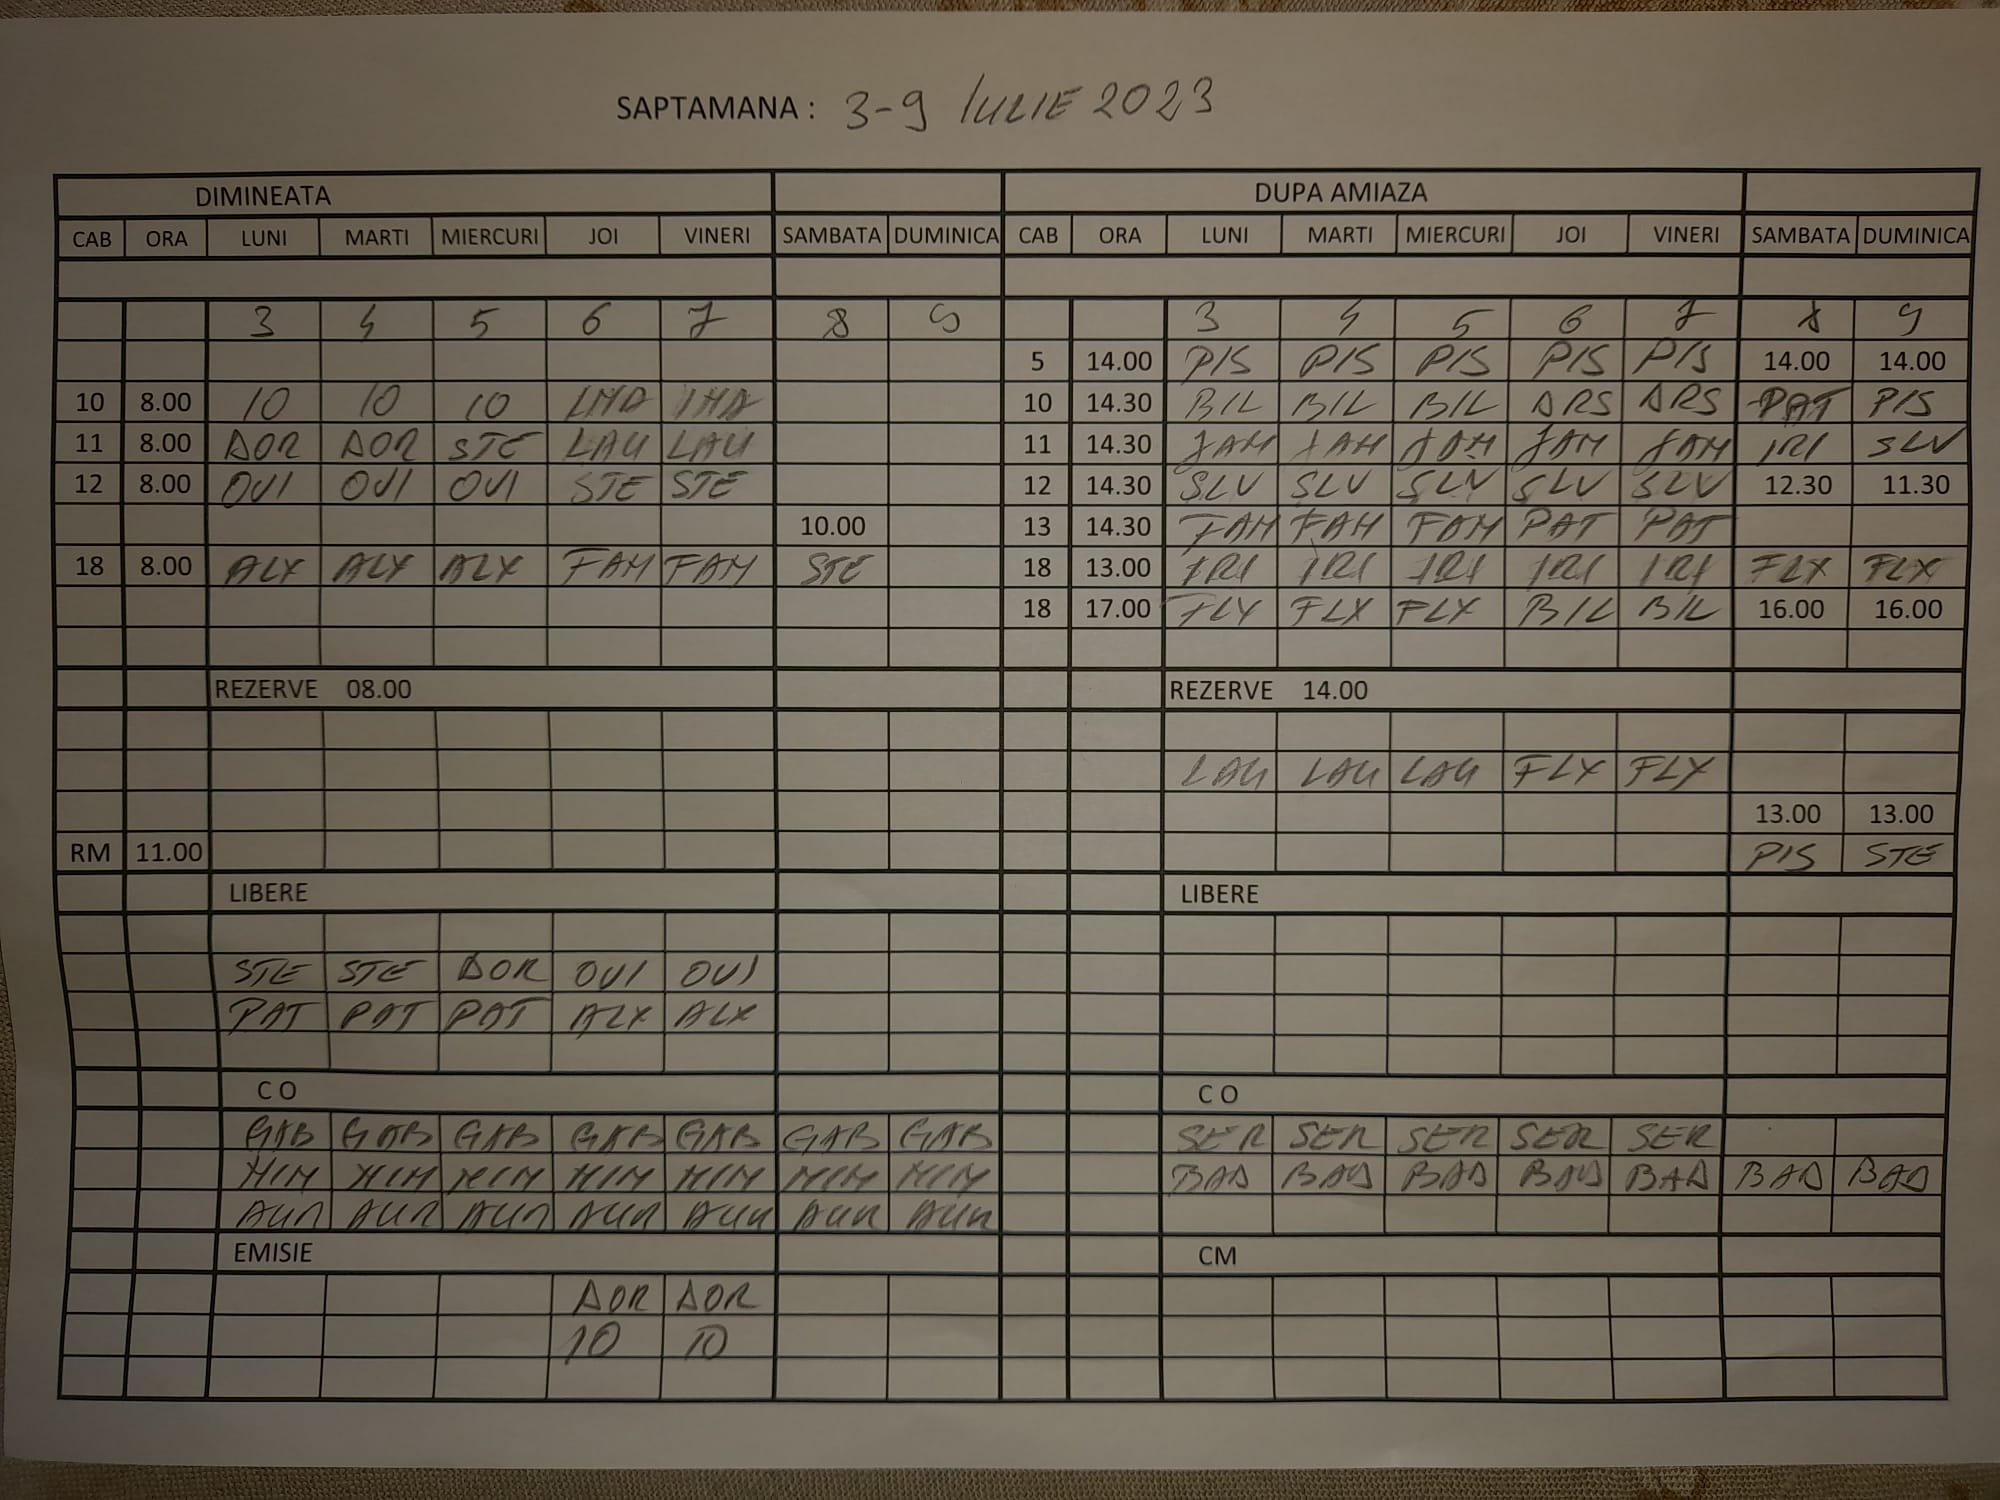 SAPTAMANA : 3-9 IULIE 2023
DIMINEATA DUPA AMIAZA
CAB ORA LUNI MARTI MIERCURI JOI VINERI SAMBATA DUMINICA CAB ORA LUNI MARTI MIERCURI JOI VINERI SAMBATA DUMINICA
3 4 5 6 7 8 9 3 4 5 6 7 8 9
5 14.00 PIS PIS PIS PIS PIS 14.00 14.00
10 8.00 10 10 10 10 14.30 BIL BIL BIL ARS ARS PAT PIS
11 8.00 DOR DOR STE LAU LAU 11 14.30 IRI SLV
12 8.00 OVI OVI OVI STE STE 12 14.30 SLV SLV SLV SLV SLV 12.30 11.30
10.00 13 14.30 FAM FAM FAM PAT PAT
18 8.00 ALX ALX ALX FAM FAM STE 18 13.00 IRI IRI IRI IRI IRI FLX FLX
18 17.00 FLX FLX FLX BIL BIL 16.00 16.00
REZERVE 08.00 REZERVE 14.00
LAU LAU LAU FLX FLX
13.00 13.00
RM 11.00 PIS STE
LIBERE LIBERE
STE STE DOR OVI OVI
PAT PAT PAT ALX ALX
C O C O
GAB GAB GAB GAB GAB GAB GAB SER SER SER SER SER
BAD BAD BAD BAD BAD BAD BAD
AUR AUR AUR AUR AUR AUR AUR
EMISIE CM
DOR DOR
10 10